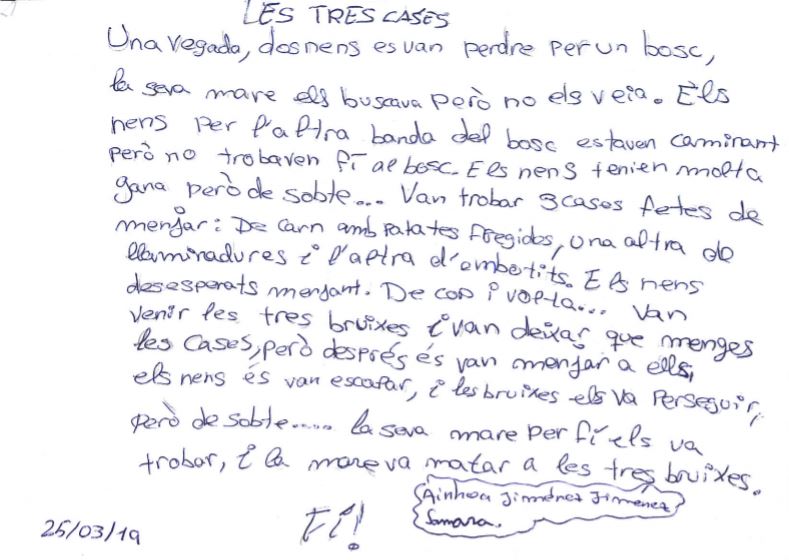 LES TRES CASES
Una vegada, dos nens es van perdre per un bosc,
la seva mare els buscava però no els veia. Èls
nens per l'altra banda del bosc estaven caminant
però no trobaven fí al bosc. Els nens tenien molta
gana però de sobte... Van trobar 3 cases fetes de
menjar: De carn amb patates fregides, una altra de
llaminadures i l'altra d'embotits. Els nens
desesperats menjant. De cop i volta... Van
venir les tres bruixes i van deixar que menges
les cases, però després és van menjar a ells,
els nens és van escapar, i les bruixes els va perseguir,
però de sobte..... la seva mare per fí els va
trobar, i la mare va matar a les tres bruixes.
Fí!
Ainhoa Jiménez Jimenez
Samara.
25/03/19